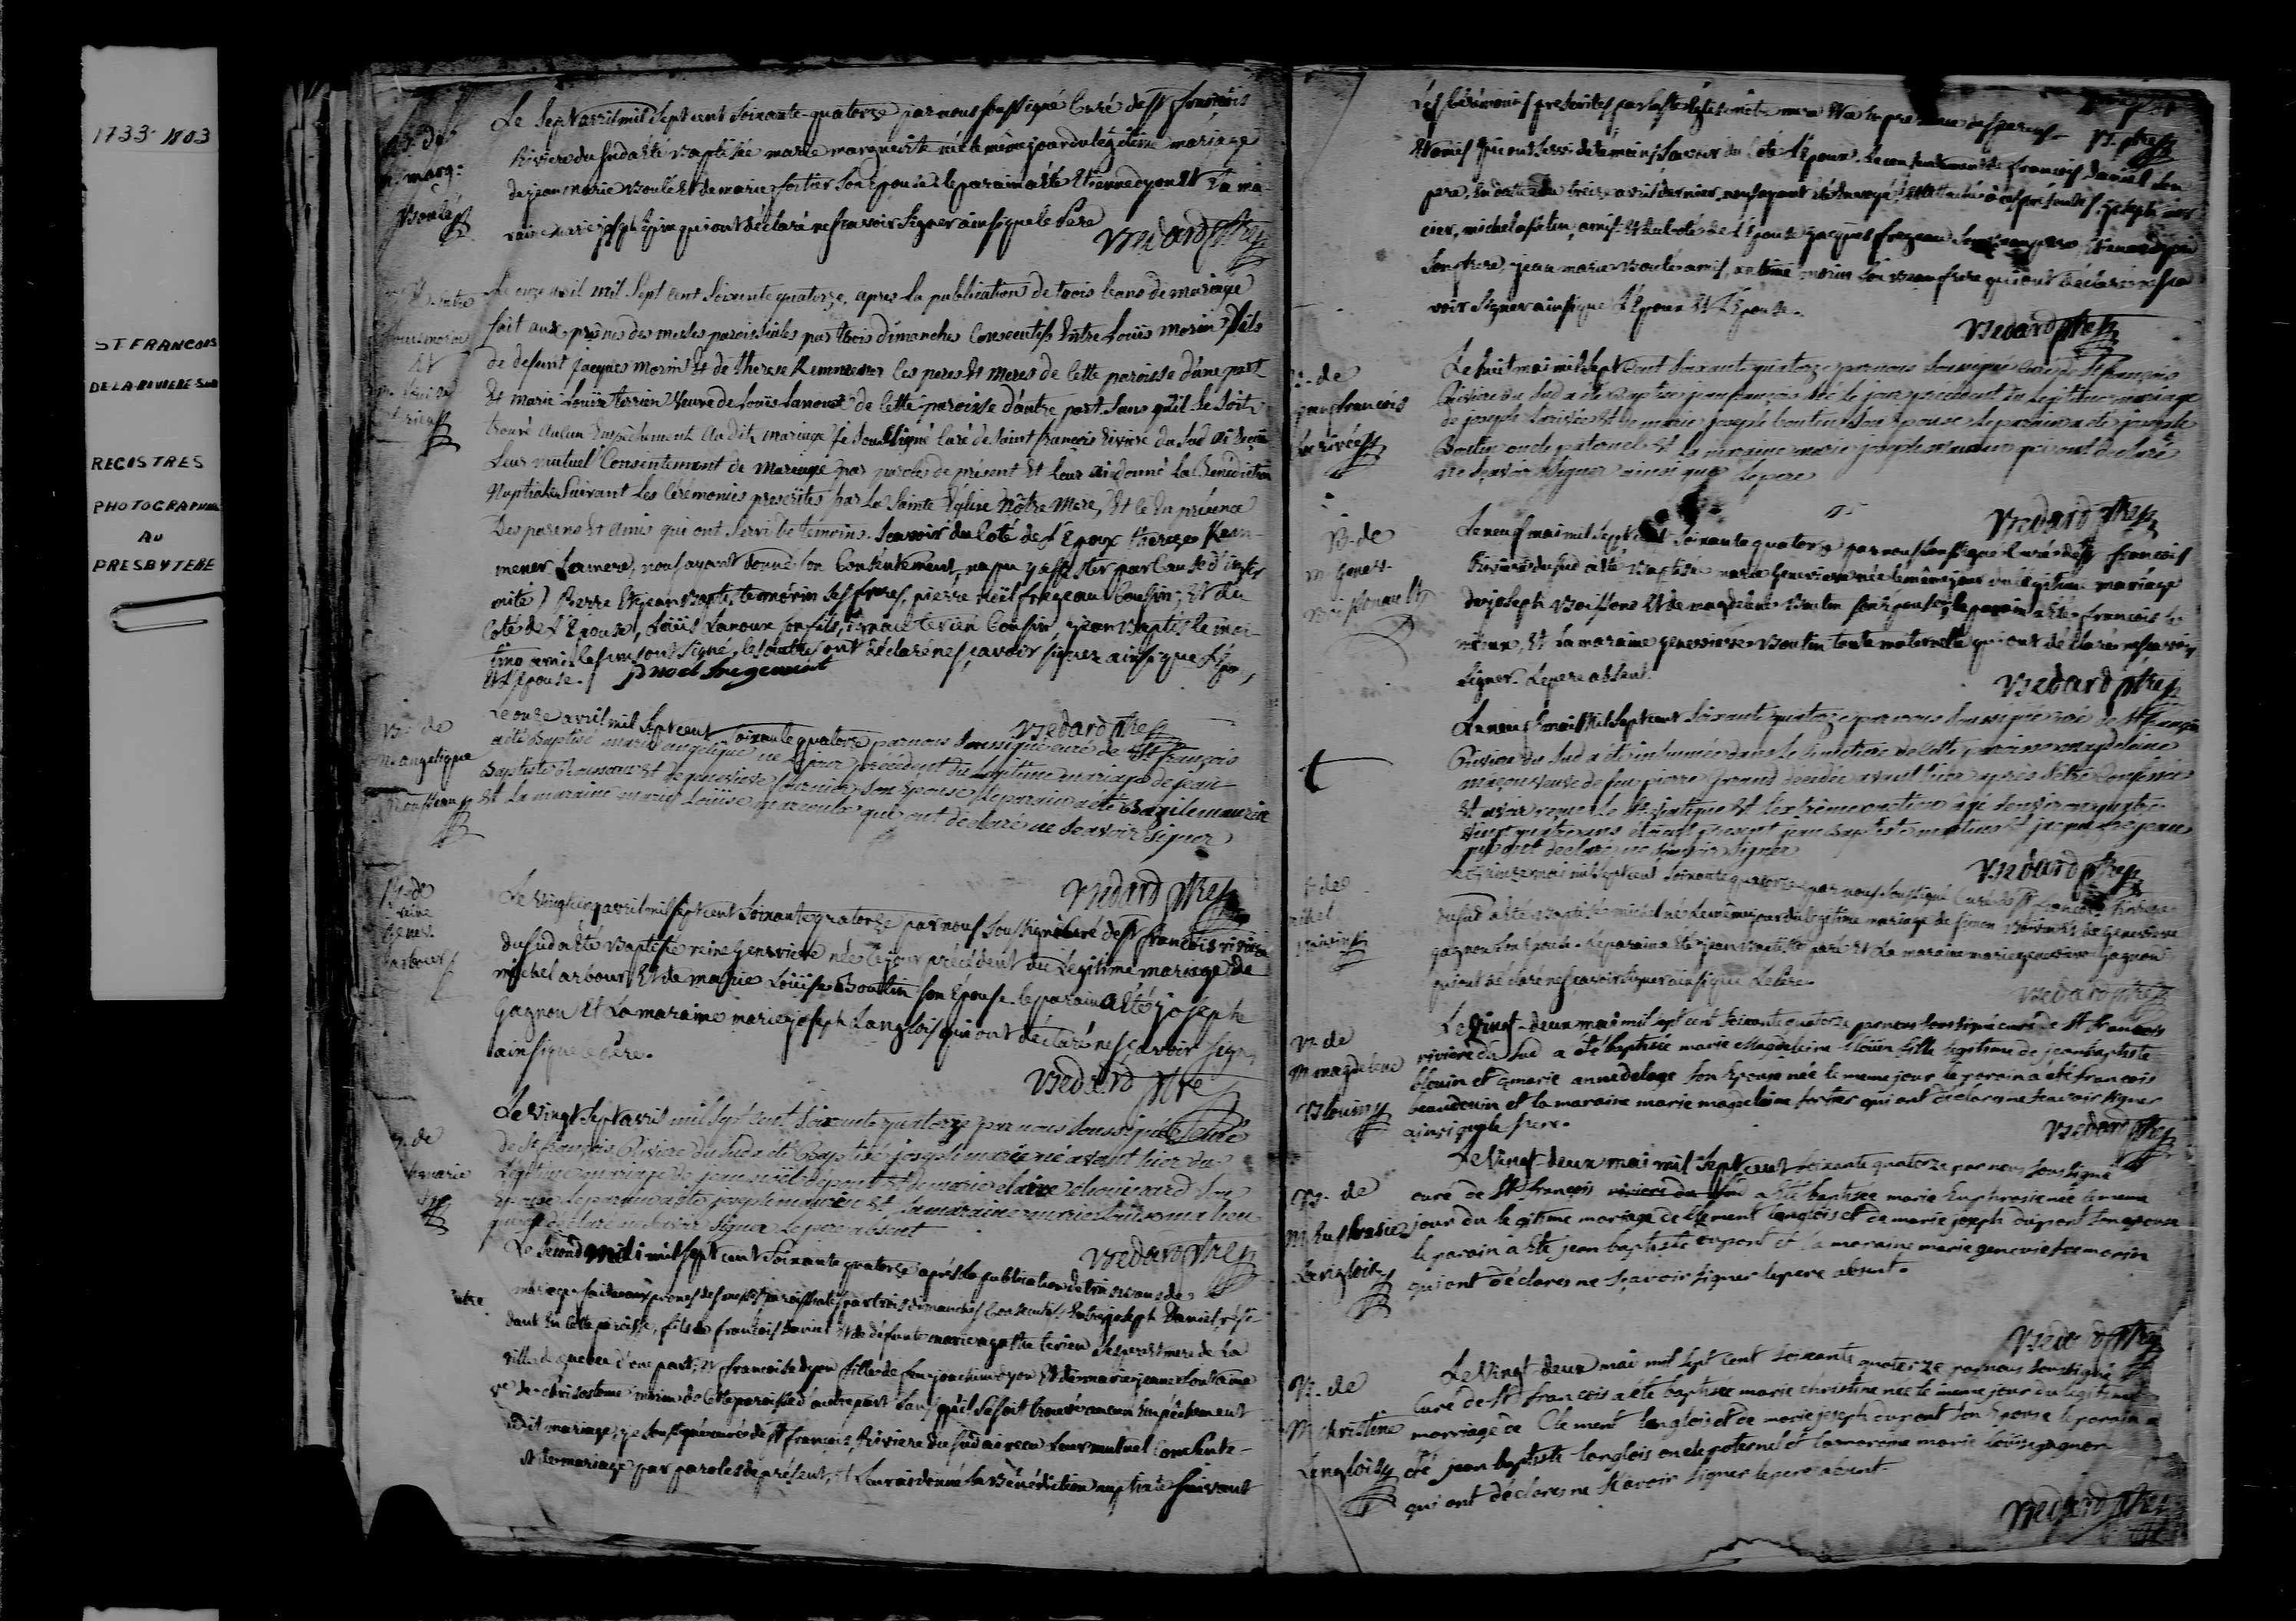 1733-1803
ST FRANCOIS
DE-LA-RIVIERE-SUD
REGISTRES
PHOTOGRAPHIES
AU
PRESBYTERE
B. de
m. marg.
Boulé
Le Sept avril mil Sept cent Soixante quatorze par nous soussigné Curé de St francois
Riviere du Sud a été Baptisée marie marguerite née le même jour du légitime mariage
de jean marie Boulé Et de marie fortier Son Epouse le parain a été Etienne dyon Et La ma
raine marie joseph qui ont déclaré ne scavoir Signer ainsi que le Pere
Bedard ptre
Le onze avril mil Sept cent Soixante quatorze, apres la publication de trois bans de mariage
fait aux prônes des messes paroissiales par trois dimanches Consecutifs Entre Louis morin fils
de defunt jacques morin Et de therese Kemmener Ses peres Et meres de cette paroisse d'une part
Et marie Louise terrien Veuve de Louis Lanoue de cette paroisse d'autre part Sans qu'il se soit
trouvé Aucun Empêchement Au dit mariage je Soussigné Curé de Saint francois Riviere du Sud ai Reçu
Leur mutuel Consentement de mariage par paroles de présent Et Leur ai donné La Benediction
Nuptiale Suivant Les Cérémonies prescrites par La Sainte Eglise Nôtre Mere, Et ce En présence
Des parens Et Amis qui ont Servi de témoins. Scavoir du coté de l'Epoux therese Kem-
mener Sa mere, nous ayant donné Son Consentement, na pu y assister par Cause d'infir
mité) Pierre Et jean Baptiste morin Ses freres, pierre noël fregeau Cousin; Et du
Coté de l'Epouse, Louis Lanoue Son fils, ignace terien Cousin, jean Baptiste
amis Les uns ont Signé, les autres ont déclaré ne scavoir signer ainsi que l'Epoux
Et l'Epouse. P noel fregeaut
Bedard ptre
B. de
m. angelique
Rousseau
Le onze avril mil Sept cent Soixante quatorze par nous Soussigné curé de St françois
a été Baptisé marie angelique née le jour précédent du légitime mariage de jean
Baptiste Rousseau Et de genevieve fournier Son Epouse Le parain a été Bazile
Et La maraine marie Louise qui ont déclaré ne Scavoir Signer
Bedard ptre
B. de
reine
Genev.
arbour
Le Vingt cinq avril mil Sept cent Soixante quatorze par nous Soussigné Curé de St francois riviere
du Sud a été Baptisée reine Genevieve née le jour précédent du Legitime mariage de
michel arbour Et de marie Louise Boutin Son Epouse. le parain a été joseph
Gagnon Et La maraine marie joseph Langlois qui ont déclaré ne scavoir Sign
ainsi que le Pere.
Bedard ptre
B. de
marie
Le Vingt Sept avril mil Sept cent Soixante quatorze par nous Soussigné Curé
de St françois Riviere du Sud a été Baptisé joseph marie né avant hier du
Legitime mariage de jean noël Et de marie claire chouinard Son
Epouse Le parain a été joseph Et La maraine marie Louise
qui ont déclaré ne Scavoir Signer le pere absent
Bedard ptre
Entre
Le Second mai mil Sept cent Soixante quatorze après la publication de trois bans de
mariage faite aux prones des messes paroissiales par trois dimanches Consecutifs Entre joseph Daniel rési-
dant En cette paroisse, fils de francois Daniel Et de défunte marie agathe terien Ses pere Et mere de La
ville de quebec d'une part, Et francoise dyon fille de feu joachim dyon Et de marie jeanne fontaine
Ve de chrisostome morin de cette paroisse d'autre part Sans qu'il Se Soit trouvé aucun Empêchement
Au dit mariage, je Soussigné curé de St francois, Riviere du Sud ai reçu Leur mutuel Consente-
ment de mariage par paroles de présent, Et Leur ai donné La Bénédiction nuptiale Suivant
Les Cérémonies prescrites par la Ste Eglise nôtre mere Et ce En presence des parens B. ptre
Et amis qui ont Servi de témoins Scavoir du coté de L'Epoux, Le consentement de francois Daniel Son
pere, En datte du treize avril dernier, nous ayant été Envoyé Et attaché à ces présentes, joseph mer
cier, michel, amis. Et du coté de l'Epouse jacques fregeau Son beau pere, Etienne dyon
Son frere, jean marie Boulé ami, antoine morin Son Beau frere qui ont déclaré ne Sca
voir Signer ainsi que l'Epoux Et l'Epouse.
Bedard ptre
B. de
jean francois
Larivée
Le huit mai mil Sept Cent Soixante quatorze par nous Soussigné curé de St françois
Riviere du Sud a été Baptisé jean françois né le jour précédent du Legitime mariage
de joseph Larivée Et de marie joseph boutin Son Epouse. Le parain a été joseph
Boutin oncle paternel Et La maraine marie joseph qui ont declaré
ne Scavoir Signer ainsi que le pere
Bedard ptre
B. de
m. Genev.
Boissonault
Le neuf mai mil Sept cent Soixante quatorze par nous Soussigné Curé de St francois
Riviere du Sud a été Baptisée marie Genevieve née le même jour du légitime mariage
de joseph Boissono Et de magdelene Boutin Son Epouse, le parain a été francois
Et La maraine genevieve Boutin tante maternelle qui ont déclaré ne scavoir
Signer. Le pere absent.
Bedard ptre
Le neuf mai Mil Sept cent Soixante quatorze par nous Soussigné curé de St françois
Riviere du Sud a été inhumée dans le Cimetiere de cette paroisse magdeleine
veuve de feu pierre decedée avant hier après s'être Confessée
Et avoir reçu Le St viatique Et L'extrême onction agé denviron quatre
vingt quatre ans étoient present jean Baptiste Et jacques fregeau
qui ont declaré ne Scavoir Signer
Bedard ptre
B. de
michel
Voisin
Le quinze mai mil Sept cent Soixante quatorze par nous Soussigné Curé de St francois Riviere
du Sud a été Baptisé michel né le même jour du légitime mariage de Simon Voisin Et de Genevieve
gagnon Son Epouse. Le parain a été jean Baptiste paré Et La maraine marie genevieve Gagnon
qui ont déclaré ne Scavoir Signer ainsi que Le Pere.
Bedard ptre
B. de
m magdelene
Blouin
Le Vingt-deux mai mil Sept cent Soixante quatorze par nous Soussigné curé de St francois
riviere du Sud a été baptisée marie Magdeleine Blouin fille legitime de jean baptiste
blouin et marie anne delage Son Epouse née le meme jour le parain a été francois
beaudouin et la maraine marie magdeleine fortier qui ont déclaré ne Scavoir signer
ainsi que le pere.
Bedard ptre
B. de
m Euphrasie
Langlois
Le Vingt-deux mai mil Sept cent Soixante quatorze par nous Soussigné
curé de St francois riviere du Sud a été baptisée marie Euphrosie née le meme
jour du legitime mariage de Clement Langlois et de marie joseph dupont Son epouse
le parain a été jean baptiste dupont et la maraine marie genevieve morin
qui ont déclarés ne Scavoir Signer le pere absent.
Bedard ptre
B. de
M christine
Langlois
Le Vingt-deux mai mil Sept Cent Soixante quatorze par nous Soussigné
Curé de St francois a été baptisée marie christine née le même jour du legitime
marriage de Clement langlois et de marie joseph dupont Son Epouse le parain a
été jean baptiste langlois oncle paternel et la maraine marie Louise gagnon
qui ont déclarés ne Scavoir Signer le pere absent.
Bedard ptre